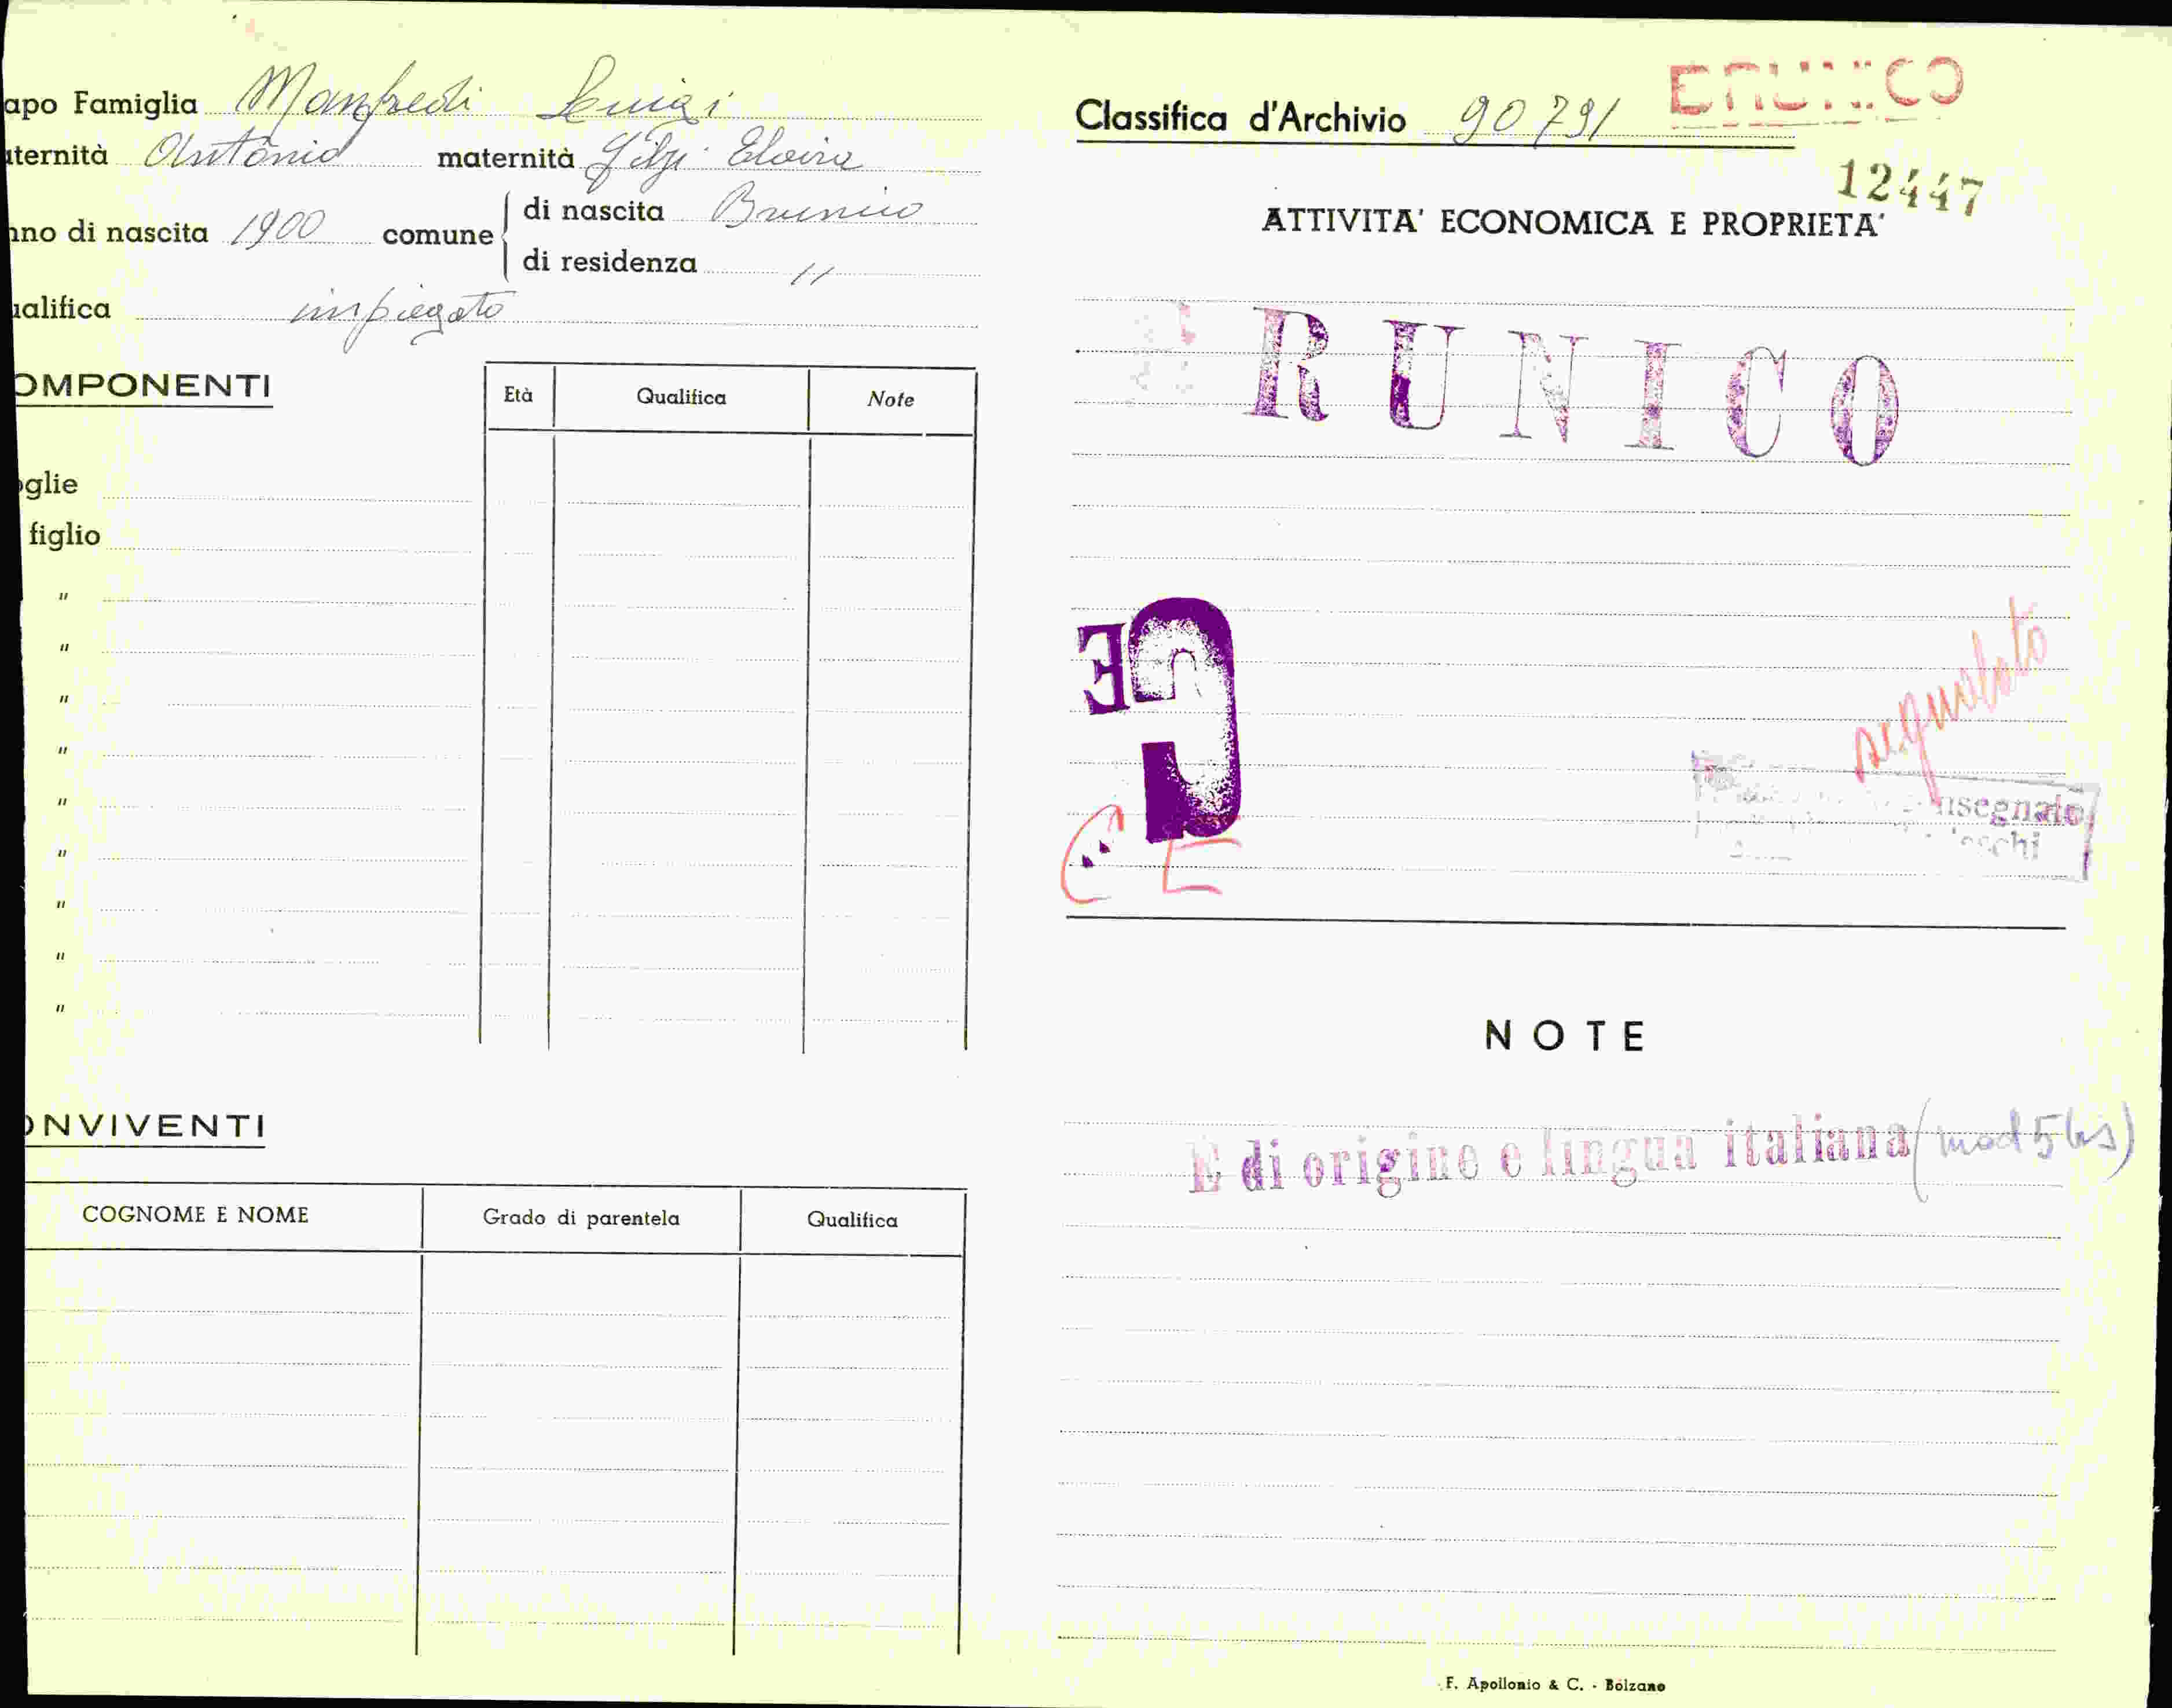 apo Famiglia Manfredi Luigi
aternità Antonio maternità Filzi Elvira
nno di nascita 1900 comune di nascita Brunico
di residenza "
ualifica impiegato
OMPONENTI
Età Qualifica Note
oglie
figlio
"
"
"
"
"
"
"
"
"
ONVIVENTI
COGNOME E NOME Grado di parentela Qualifica
BRUNICO
Classifica d'Archivio 90791
12447
ATTIVITA' ECONOMICA E PROPRIETA'
RUNICO
E
C
segnalato
nsegnato
eschi
C E
NOTE
E di origine e lingua italiana (mod 5 bis)
F. Apollonio & C. - Bolzano